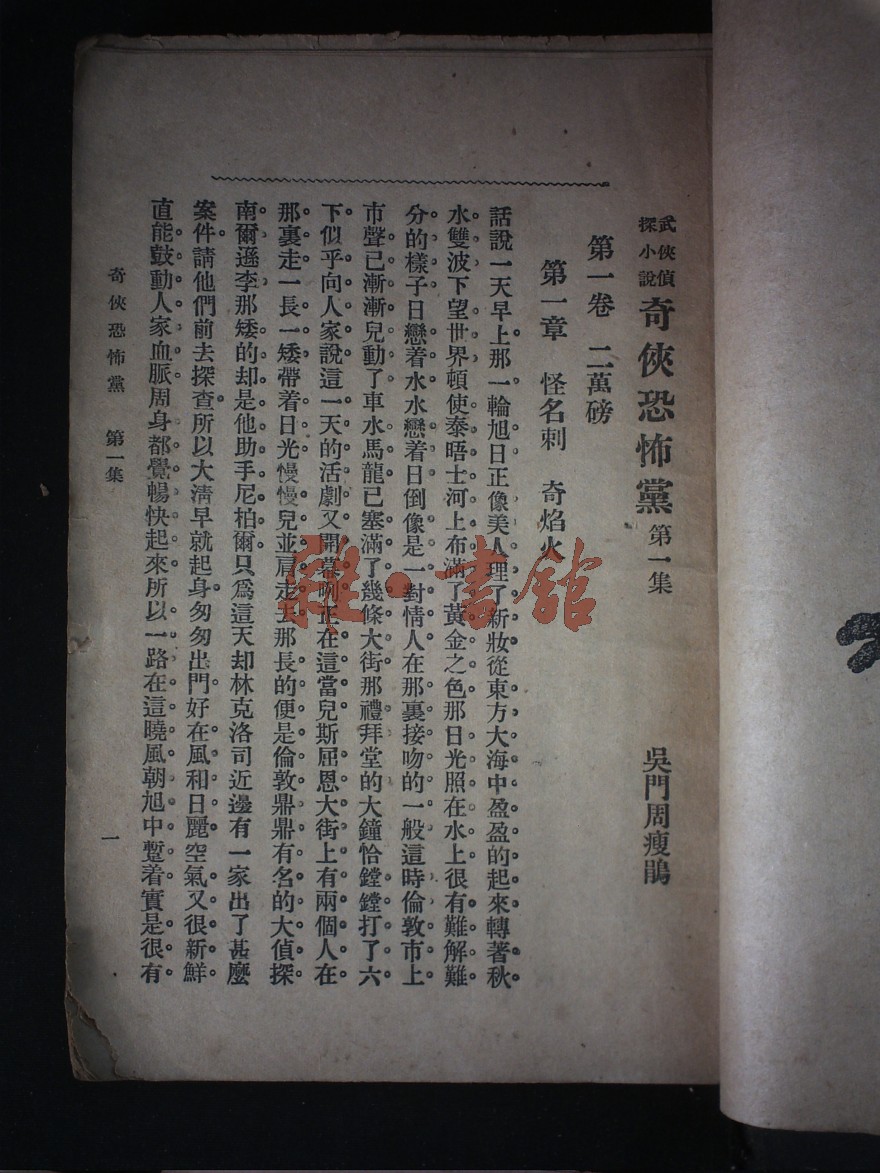 武俠偵探小說 奇俠恐怖黨 第一集 吳門周瘦鵑
第一卷 二萬磅
第一章 怪名刺 奇焰火
話說一天早上。那一輪旭日正像美人理了新妝從東方大海中盈盈的起來轉著秋
水雙波下望世界頓使泰晤士河上布滿了黃金之色那日光照在水上很有難解難
分的樣子日戀着水水戀着日倒像是一對情人在那裏接吻的一般這時倫敦市上
市聲已漸漸兒動了車水馬龍已塞滿了幾條大街那禮拜堂的大鐘恰鏜鏜打了六
下似乎向人家說這一天的活劇又開幕咧正在這當兒斯屈恩大街上有兩個人在
那裏走一長一矮帶着日光慢慢兒並肩走去那長的便是倫敦鼎鼎有名的大偵探
南爾遜李那矮的却是他助手尼柏爾只爲這天却林克洛司近邊有一家出了甚麼
案件請他們前去探查所以大淸早就起身匆匆出門好在風和日麗空氣又很新鮮
直能鼓動人家血脈周身都覺暢快起來所以一路在這曉風朝旭中蹔着實是很有
奇俠恐怖黨 第一集
一
雜·書館